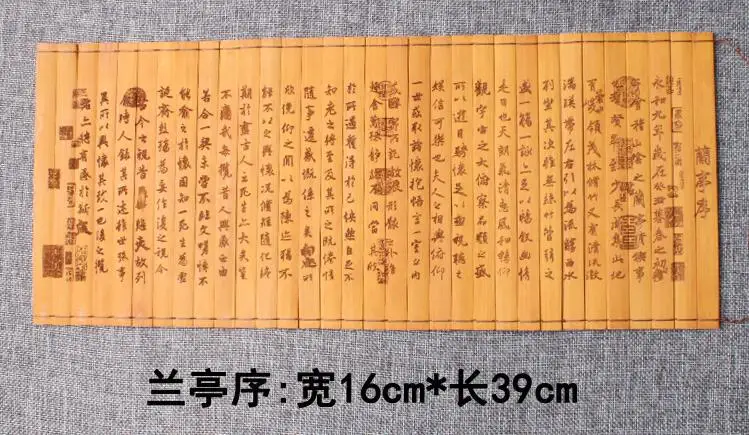 蘭亭序
永和九年歲在癸丑暮春之初會
于會稽山陰之蘭亭脩禊事
也羣賢畢至少長咸集此地
有峻領茂林脩竹又有清流激
湍暎帶左右引以為流觴曲水
列坐其次雖無絲竹管弦之
盛一觴一詠亦足以暢敘幽情
是日也天朗氣清惠風和暢仰
觀宇宙之大俯察品類之盛
所以遊目騁懷足以極視聽之
娛信可樂也夫人之相與俯仰
一世或取諸懷抱悟言一室之內
或因寄所託放浪形骸之外雖
趣舍萬殊靜躁不同當其欣
於所遇蹔得於己怏然自足不
知老之將至及其所之既惓情
隨事遷感慨係之矣向之所
欣俛仰之間以為陳迹猶不
能不以之興懷況脩短隨化終
期於盡古人云死生亦大矣豈
不痛哉每攬昔人興感之由
若合一契未嘗不臨文嗟悼不
能喻之於懷固知一死生為虛
誕齊彭殤為妄作後之視今
亦由今之視昔悲夫故列
敘時人錄其所述雖世殊事
異所以興懷其致一也後之攬
者亦將有感於斯文
兰亭序:宽16cm*长39cm